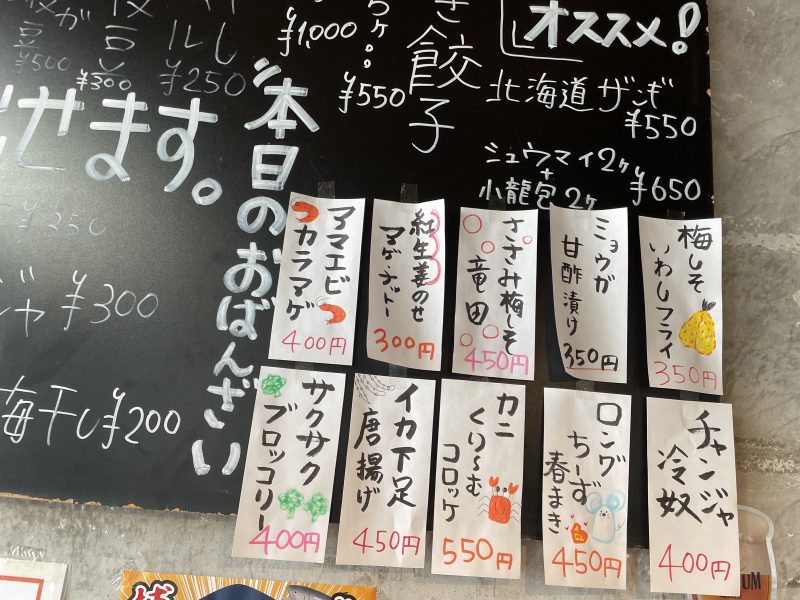 オススメ!
北海道ザンギ
¥550
シュウマイ2ヶ
+
小龍包2ヶ
¥650
き餃子
¥550
¥1,000
¥500
¥300
¥250
せます。
本日のおばんざい
¥350
¥300
梅干し¥200
梅しそ
いわしフライ
350円
ミョウガ
甘酢漬け
350円
ささみ梅しそ
竜田
450円
紅生姜のせ
マゲ・ナットー
300円
アマエビ
カラマゲ
400円
チャンジャ
冷奴
400円
ロング
ちーず
春まき
450円
カニ
くりーむ
コロッケ
550円
イカ下足
唐揚げ
450円
サクサク
ブロッコリー
400円